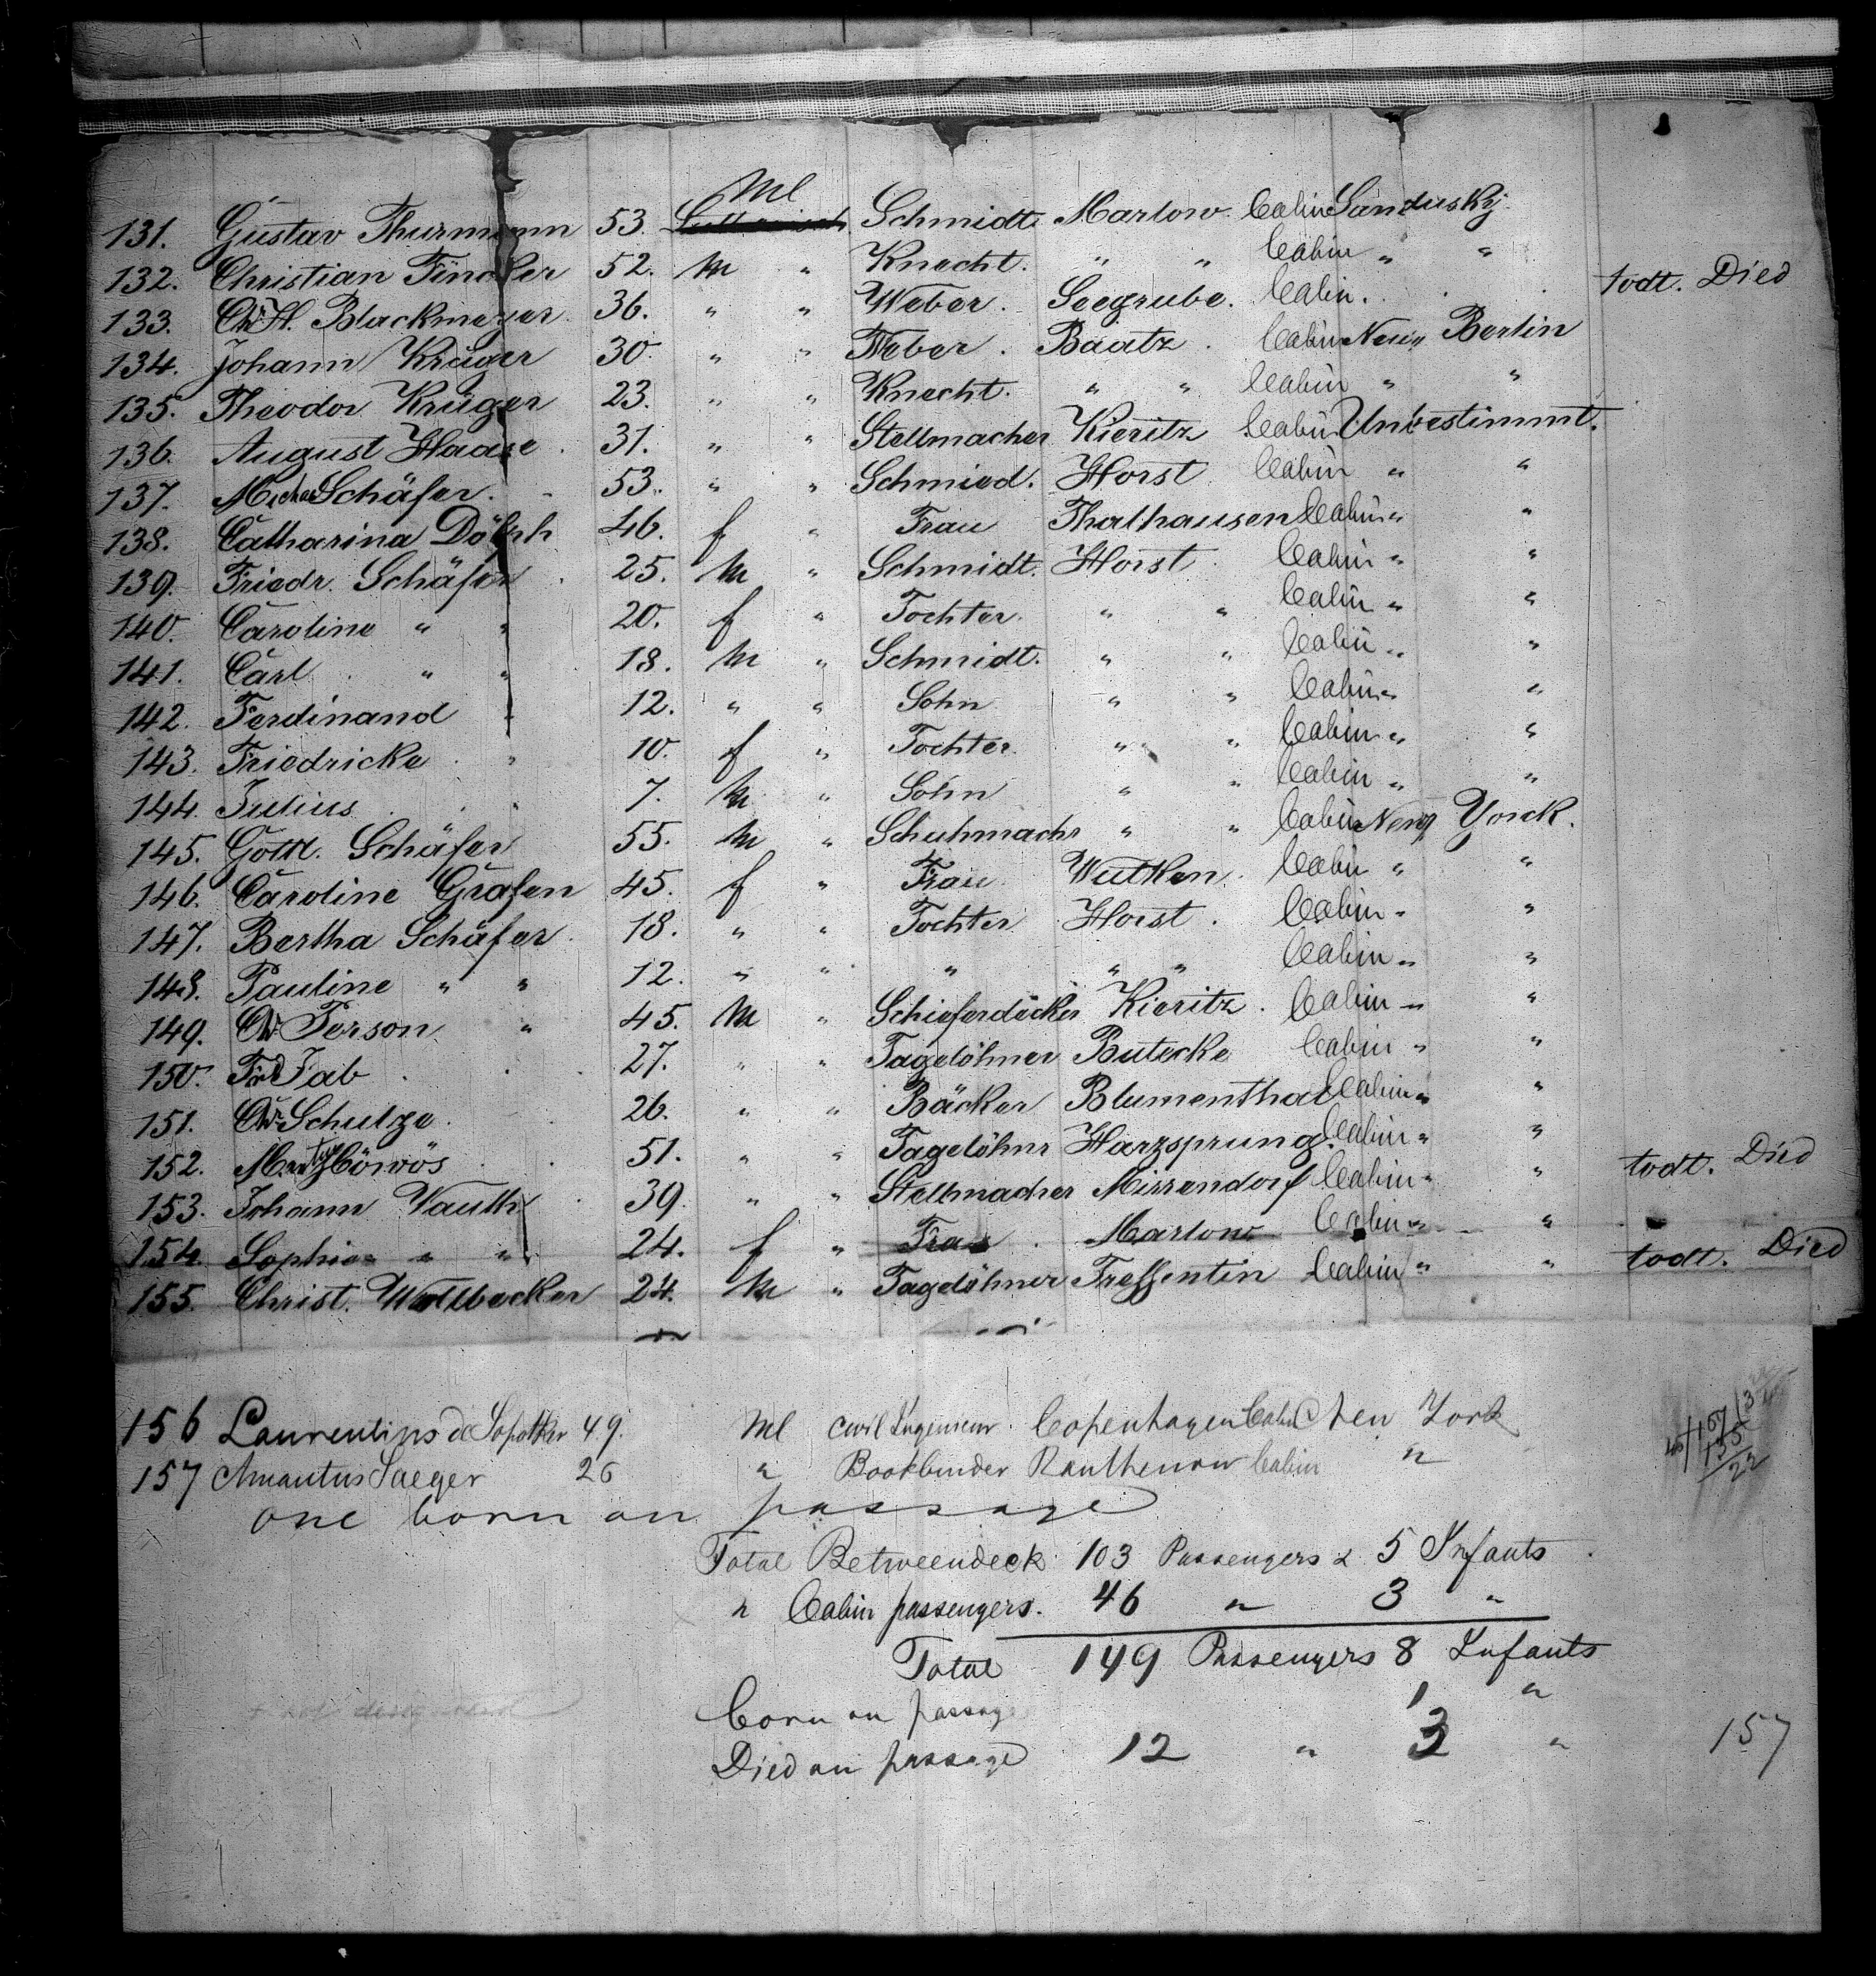 131. Gustav Thurmann 53. Ml Schmidt Marlow. Cabin Sandusky.
132. Christian Fincker 52. m " Knecht. " " Cabin " "
133. Chr H. Blackmeyer 36. " " Weber. Seegrube. Cabin. todt. Died
134. Johann Krüger 30. " " Weber. Baatz. Cabin New Berlin
135. Theodor Krüger 23. " " Knecht. " " Cabin " "
136. August Haase. 31. " " Stellmacher Kieritz Cabin Unbestimmt.
137. Michel Schäfer. 53. " " Schmied. Horst Cabin " "
138. Catharina 46. f " Frau Thalhausen Cabin " "
139. Friedr. Schäfer 25. m " Schmidt. Horst Cabin " "
140. Caroline " " 20. f " Tochter. " " Cabin " "
141. Carl " " 18. m " Schmidt. " " Cabin " "
142. Ferdinand " 12. " " Sohn " " Cabin " "
143. Friedricke " 10. f " Tochter. " " Cabin " "
144. Julius 7. m " Sohn " " Cabin " "
145. Gottl. Schäfer 55. m " Schuhmachr " " Cabin New Yorck.
146. Caroline Grafen 45. f " Frau Wutken. Cabin " "
147. Bertha Schäfer 18. " " Tochter Horst. Cabin " "
148. Pauline " " 12. " " " " " Cabin " "
149. Chr Ferson " 45. m " Schieferdecker Kieritz. Cabin " "
150. Frd Jab 27. " " Tagelöhner Butecke Cabin " "
151. Chr Schulze 26. " " Bäcker Blumenthal Cabin " "
152. 51. " " Tagelöhnr Harzsprung. Cabin " "
153. Johann Wauth 39. " " Stellmacher Missendorf Cabin " " todt. Died
154. Sophie " " 24. f " Frau. Marlow Cabin " "
155. Christ. Wollbecker 24. m " Tagelöhner Tressentin Cabin " " todt. Died
156 Laurentius de 49. Ml Civil Ingenieur. Copenhagen Cabin New York
157 Amantus Saeger 26 " Bookbinder Ranthenow Cabin "
157
135
22
one born on passage
Total Betweendeck 103 Passengers & 5 Infants
" Cabin passengers. 46 " 3 "
Total 149 Passengers 8 Infants
born on passage 1 "
Died on passage 12 " 3 " 157